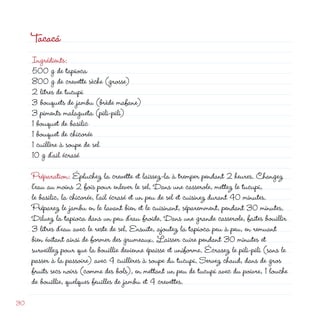 Tacacá
Ingrédients:
500 g de tapioca
800 g de crevette sèche (grosse)
2 litres de tucupi
3 bouquets de jambu (brède mafane)
3 piments malagueta (pili-pili)
1 bouquet de basilic
1 bouquet de chicorée
1 cuillère à soupe de sel
10 g d'ail écrasé
Préparation: Épluchez la crevette et laissez-la à tremper pendant 2 heures. Changez
l'eau au moins 2 fois pour enlever le sel. Dans une casserole, mettez le tucupi,
le basilic, la chicorée, l'ail écrasé et un peu de sel et cuisinez durant 40 minutes.
Préparez le jambu en le lavant bien et le cuisinant, séparemment, pendant 30 minutes.
Diluez la tapioca dans un peu d'eau froide. Dans une grande casserole, faites bouillir
3 litres d'eau avec le reste de sel. Ensuite, ajoutez la tapioca peu à peu, en remuant
bien évitant ainsi de former des grumeaux. Laisser cuire pendant 30 minutes et
surveillez pour que la bouillie devienne épaisse et uniforme. Écrasez le pili-pili (sans le
passer à la passoire) avec 4 cuillères à soupe du tucupi. Servez chaud, dans de gros
fruits secs noirs (comme des bols), en mettant un peu de tucupi avec du poivre, 1 louche
de bouillie, quelques feuilles de jambu et 4 crevettes.
30